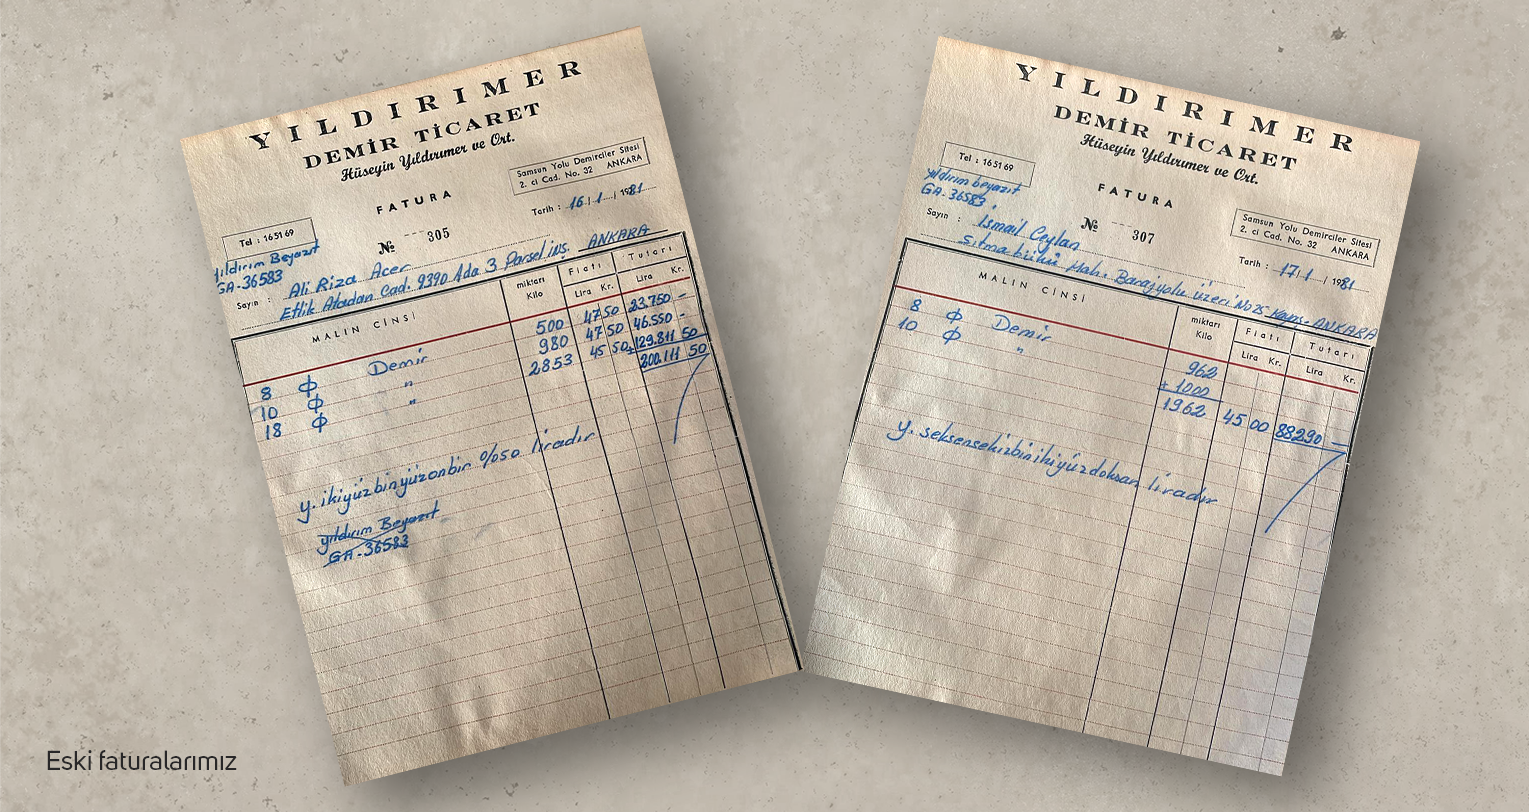 YILDIRIMER
DEMİR TİCARET
Hüseyin Yıldırımer ve Ort.
Samsun Yolu Demirciler Sitesi
2. ci Cad. No. 32 ANKARA
FATURA
Tarih : 16/1/1981
Tel : 16 51 69
№ 305
Yıldırım Beyazıt
GA-36583
Sayın : Ali Rıza Acer
Etlik Atadan Cad. 9390 Ada 3 Parsel inş. ANKARA
MALIN CİNSİ miktarı Kilo Fiatı Lira Kr. Tutarı Lira Kr.
8 ϕ Demir 500 47 50 23.750 -
10 ϕ " 980 47 50 46.550 -
18 ϕ " 2853 45 50 +129.811 50
200.111 50
y. ikiyüzbinyüzonbir %50 liradır
Yıldırım Beyazıt
GA-36583
YILDIRIMER
DEMİR TİCARET
Hüseyin Yıldırımer ve Ort.
Tel : 16 51 69
FATURA
Yıldırım beyazıt
GA-36583
Samsun Yolu Demirciler Sitesi
2. ci Cad. No. 32 ANKARA
№ 307
Tarih : 17/1/1981
Sayın : İsmail Ceylan
Sıtma bükü Mah. Barajyolu üzeri No 25 ANKARA
MALIN CİNSİ miktarı Kilo Fiatı Lira Kr. Tutarı Lira Kr.
8 ϕ Demir 962
10 ϕ " + 1000
1962 45 00 88290 -
y. seksensekizbinikiyüzdoksan liradır
Eski faturalarımız